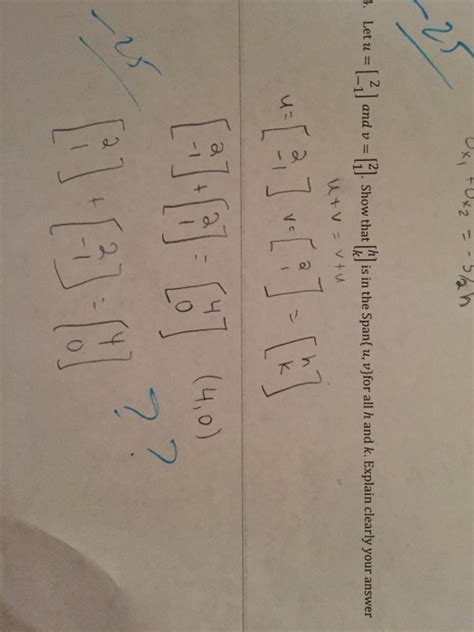 0x₁ + 0x₂ = -5/2h
-25
4. Let u = [2 -1] and v = [2 1]. Show that [h k] is in the Span{ u, v}for all h and k. Explain clearly your answer
u + v = v + u
u = [2 -1] v = [2 1] = [h k]
[2 -1] + [2 1] = [4 0] (4,0)
-25
? ?
[2 1] + [2 -1] = [4 0]